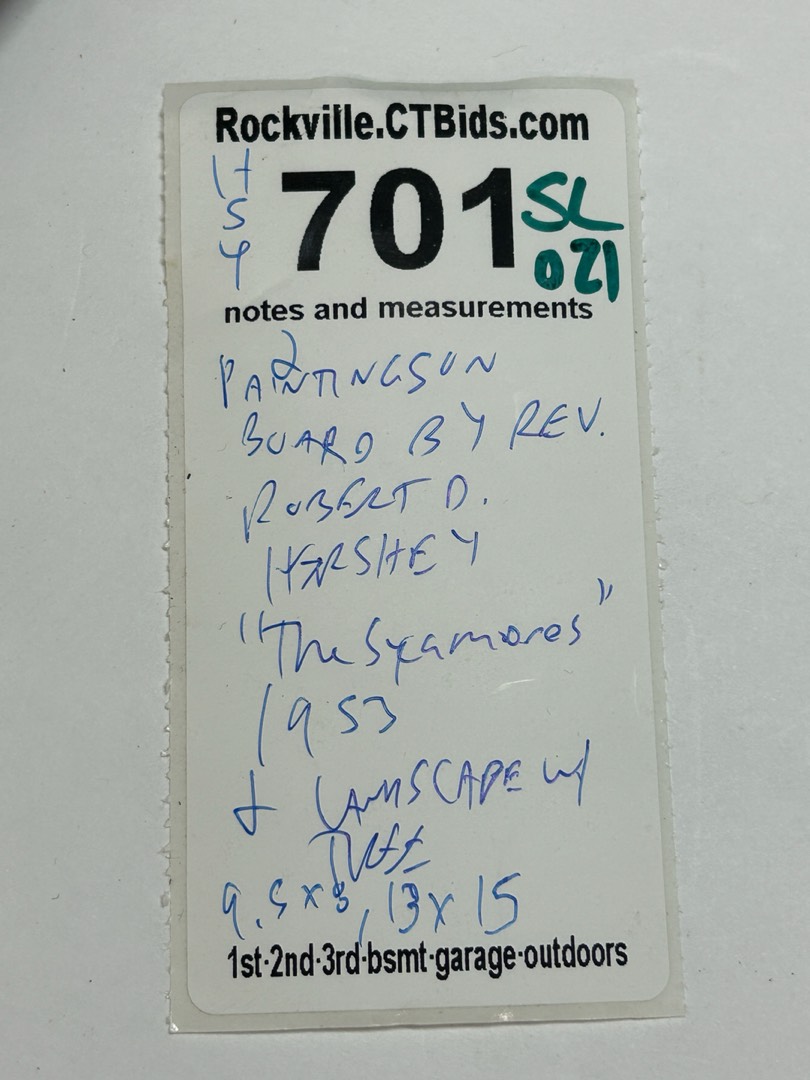 Rockville.CTBids.com
H
S
Y
701
SL
021
notes and measurements
2
PAINTINGS ON
BOARD BY REV.
ROBERT D.
HERSHEY
"The Sycamores"
1953
+ LANDSCAPE w/
TREE
9.5x8, 13x15
1st·2nd·3rd·bsmt·garage·outdoors